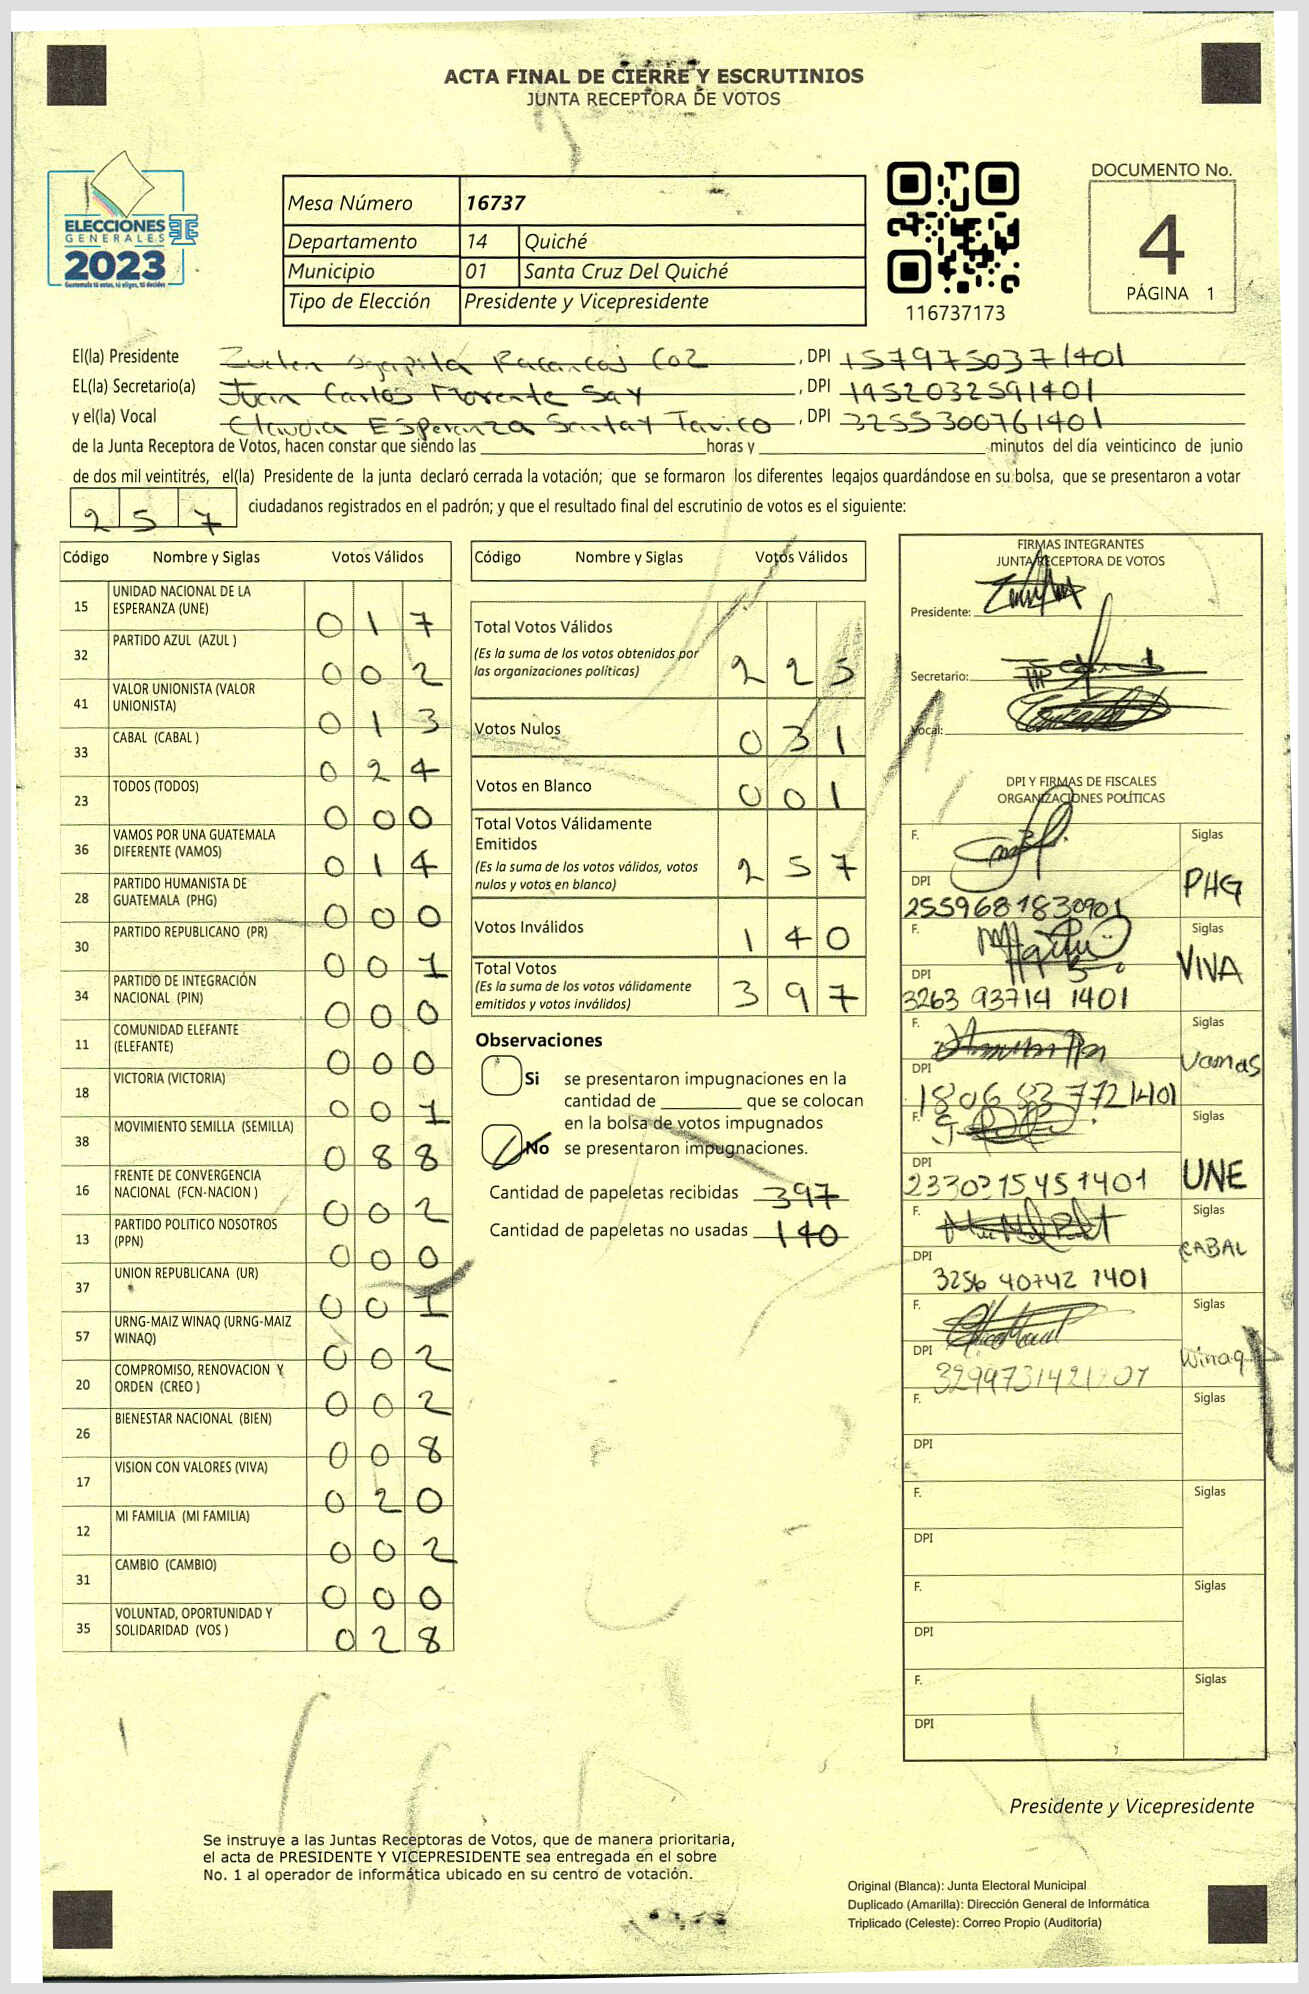 ACTA FINAL DE CIERRE Y ESCRUTINIOS
JUNTA RECEPTORA DE VOTOS
ELECCIONES
GENERALES
2023
Mesa Número 16737
Departamento 14 Quiché
Municipio 01 Santa Cruz Del Quiché
Tipo de Elección Presidente y Vicepresidente
116737173
DOCUMENTO No.
4
PÁGINA 1
El(la) Presidente , DPI 1579750371401
EL(la) Secretario(a) Juan Carlos Morente Say , DPI 1952032591401
y el(la) Vocal Claudia Esperanza Santay Tavico , DPI 3255300761401
de la Junta Receptora de Votos, hacen constar que siendo las horas y minutos del día veinticinco de junio
de dos mil veintitrés, el(la) Presidente de la junta declaró cerrada la votación; que se formaron los diferentes legajos guardándose en su bolsa, que se presentaron a votar
257 ciudadanos registrados en el padrón; y que el resultado final del escrutinio de votos es el siguiente:
Código Nombre y Siglas Votos Válidos
15 UNIDAD NACIONAL DE LA ESPERANZA (UNE) 017
32 PARTIDO AZUL (AZUL ) 002
41 VALOR UNIONISTA (VALOR UNIONISTA) 013
33 CABAL (CABAL ) 024
23 TODOS (TODOS) 000
36 VAMOS POR UNA GUATEMALA DIFERENTE (VAMOS) 014
28 PARTIDO HUMANISTA DE GUATEMALA (PHG) 000
30 PARTIDO REPUBLICANO (PR) 001
34 PARTIDO DE INTEGRACIÓN NACIONAL (PIN) 000
11 COMUNIDAD ELEFANTE (ELEFANTE) 000
18 VICTORIA (VICTORIA) 001
38 MOVIMIENTO SEMILLA (SEMILLA) 088
16 FRENTE DE CONVERGENCIA NACIONAL (FCN-NACION ) 002
13 PARTIDO POLITICO NOSOTROS (PPN) 000
37 UNION REPUBLICANA (UR) 001
57 URNG-MAIZ WINAQ (URNG-MAIZ WINAQ) 002
20 COMPROMISO, RENOVACION Y ORDEN (CREO ) 002
26 BIENESTAR NACIONAL (BIEN) 008
17 VISION CON VALORES (VIVA) 020
12 MI FAMILIA (MI FAMILIA) 002
31 CAMBIO (CAMBIO) 000
35 VOLUNTAD, OPORTUNIDAD Y SOLIDARIDAD (VOS ) 028
Código Nombre y Siglas Votos Válidos
Total Votos Válidos 225
(Es la suma de los votos obtenidos por
las organizaciones políticas)
Votos Nulos 031
Votos en Blanco 001
Total Votos Válidamente
Emitidos 257
(Es la suma de los votos válidos, votos
nulos y votos en blanco)
Votos Inválidos 140
Total Votos 397
(Es la suma de los votos válidamente
emitidos y votos inválidos)
Observaciones
Si se presentaron impugnaciones en la
cantidad de que se colocan
en la bolsa de votos impugnados
No se presentaron impugnaciones.
Cantidad de papeletas recibidas 397
Cantidad de papeletas no usadas 140
FIRMAS INTEGRANTES
JUNTA RECEPTORA DE VOTOS
Presidente:
Secretario:
Vocal:
DPI Y FIRMAS DE FISCALES
ORGANIZACIONES POLÍTICAS
F. Siglas PHG
DPI 2559681830901
F. Siglas VIVA
DPI 3263 93714 1401
F. Siglas Vamos
DPI 1806 83 772 1401
F. Siglas UNE
DPI
F. Siglas CABAL
DPI 3256 40742 1401
F. Siglas Winaq
DPI
F. Siglas
DPI
F. Siglas
DPI
F. Siglas
DPI
F. Siglas
DPI
Presidente y Vicepresidente
Se instruye a las Juntas Receptoras de Votos, que de manera prioritaria,
el acta de PRESIDENTE Y VICEPRESIDENTE sea entregada en el sobre
No. 1 al operador de informática ubicado en su centro de votación.
Original (Blanca): Junta Electoral Municipal
Duplicado (Amarilla): Dirección General de Informática
Triplicado (Celeste): Correo Propio (Auditoría)